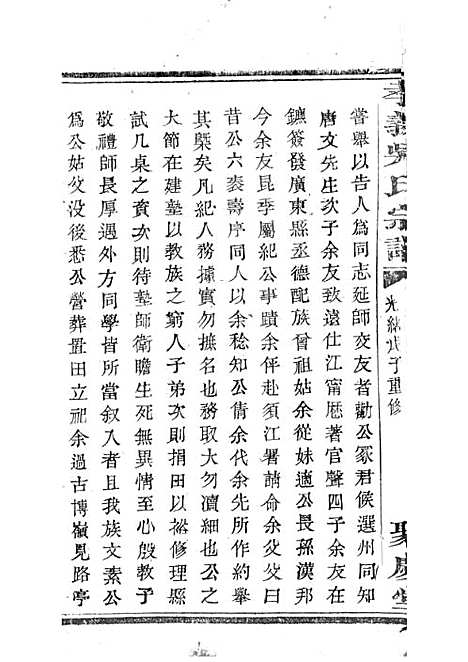 孝義吳氏宗譜
光緒戊子重修
聚慶堂
嘗舉以告人爲同志延師交友者勸公冢君候選州同知
唐文先生次子余友致遠仕江甯歷著官聲四子余友在
鑣簽發廣東縣丞德配族曾祖姑余從妹適公長孫漢邦
今余友昆季屬紀公事蹟余伻赴須江署請命余父父曰
昔公六袠壽序同人以余稔知公倩余代余先所作約舉
其槩矣凡紀人務據實勿摭名也務取大勿瀆細也公之
大節在建塾以教族之窮人子弟次則捐田以裕修理縣
試几桌之資次則待塾師衛瞻生死無異情至心殷教予
敬禮師長厚遇外方同學皆所當叙入者且我族文素公
爲公姑父没後悉公營葬置田立祀余過古博嶺見路亭